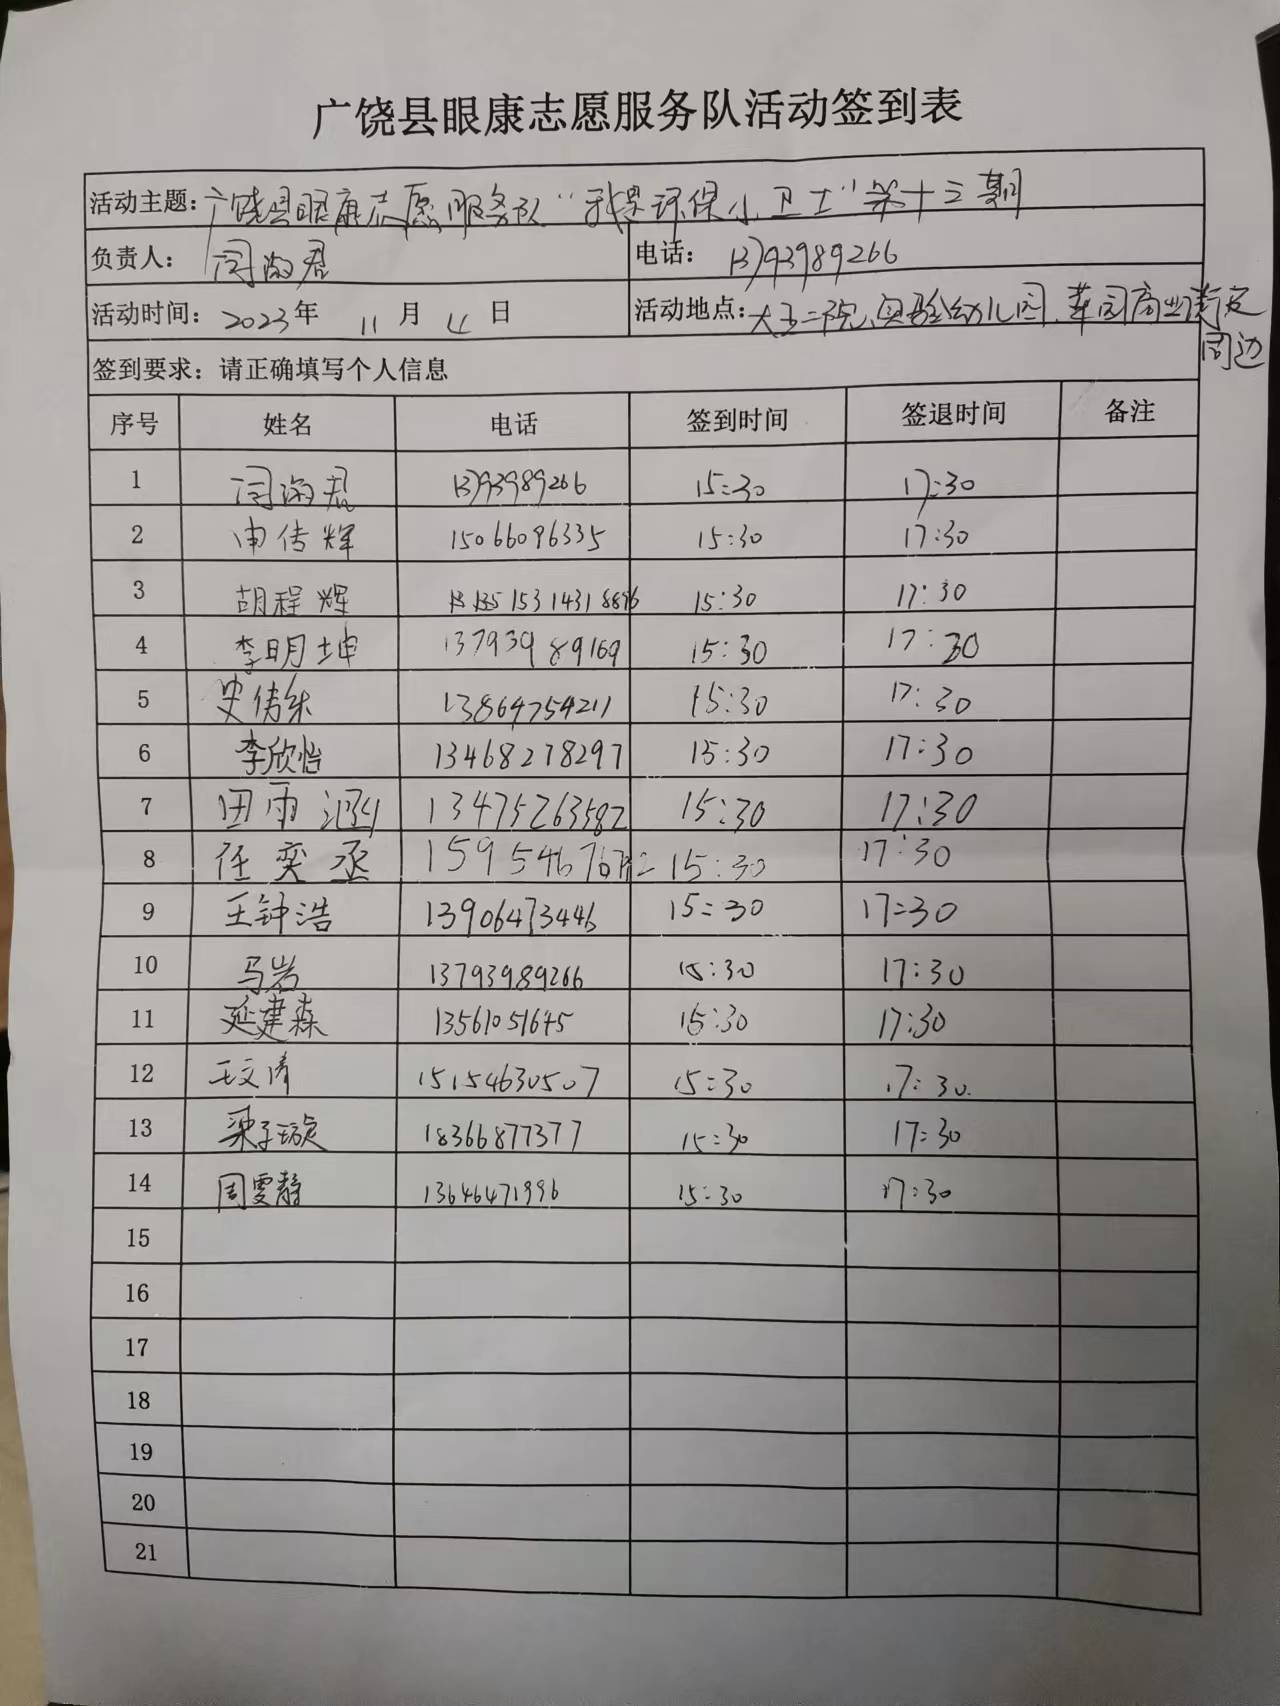 广饶县眼康志愿服务队活动签到表
活动主题：广饶县眼康志愿服务队“我是环保小卫士”第十三期
负责人：闫尚君 电话：13793989266
活动时间：2023年 11月 4日 活动地点：大王二院、实验幼儿园、莘园商业街及周边
签到要求：请正确填写个人信息
序号 姓名 电话 签到时间 签退时间 备注
1 闫尚君 13793989266 15:30 17:30
2 申传辉 15066096335 15:30 17:30
3 胡程辉 15:30 17:30
4 李明坤 13793989169 15:30 17:30
5 史伟东 13864754211 15:30 17:30
6 李欣怡 13468278297 15:30 17:30
7 田雨 13475263582 15:30 17:30
8 任奕丞 15:30 17:30
9 王钟浩 13906473446 15:30 17:30
10 马岩 13793989266 15:30 17:30
11 延建森 13561051645 15:30 17:30
12 王文清 15154630507 15:30 17:30
13 梁子璇 18366877377 15:30 17:30
14 周雯静 13646471996 15:30 17:30
15
16
17
18
19
20
21